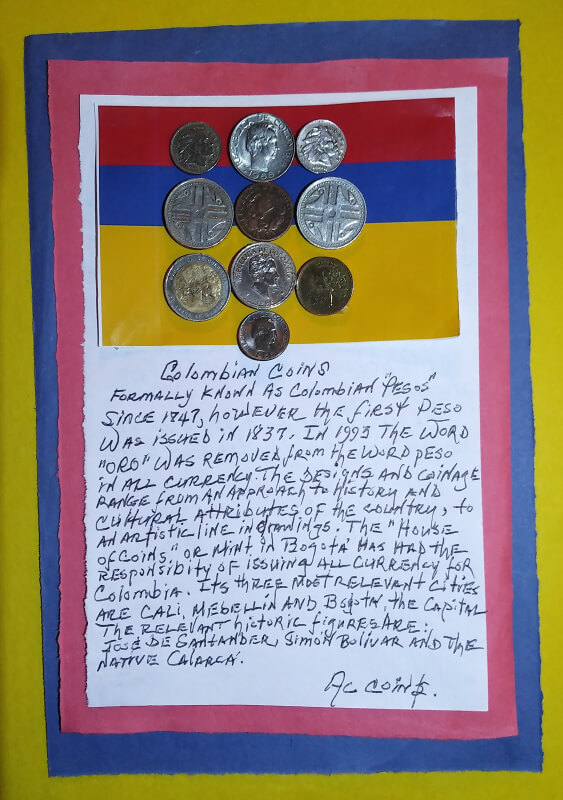 Colombian Coins
Formally known as Colombian "Pesos"
Since 1747, however the first Peso
was issued in 1837. In 1993 the word
"ORO" was removed from the word peso
in all currency. The designs and coinage
range from an approach to history and
cultural attributes of the country, to
an artistic line in drawings. The "House
of Coins" or mint in Bogotá has had the
responsibity of issuing all currency for
Colombia. Its three most relevant cities
are Cali, Medellin and Bogota, the capital
The relevant historic figures are:
José de Santander, Simon Bolivar and the
native Calarcá.
AC Coins.